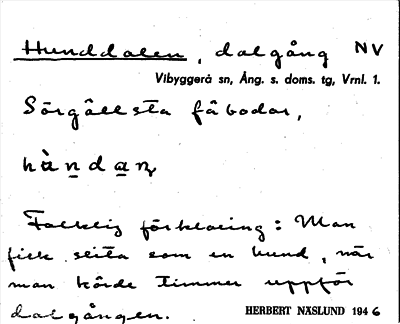 Hunddalen, dalgång NV
Vibyggerå sn, Ång. s. doms. tg, Vrnl. 1.
Sörgällsta fäbodar,
Folklig förklaring: Man
fick slita som en hund, när
man körde timmer uppför
dalgången.
HERBERT NÄSLUND 1946